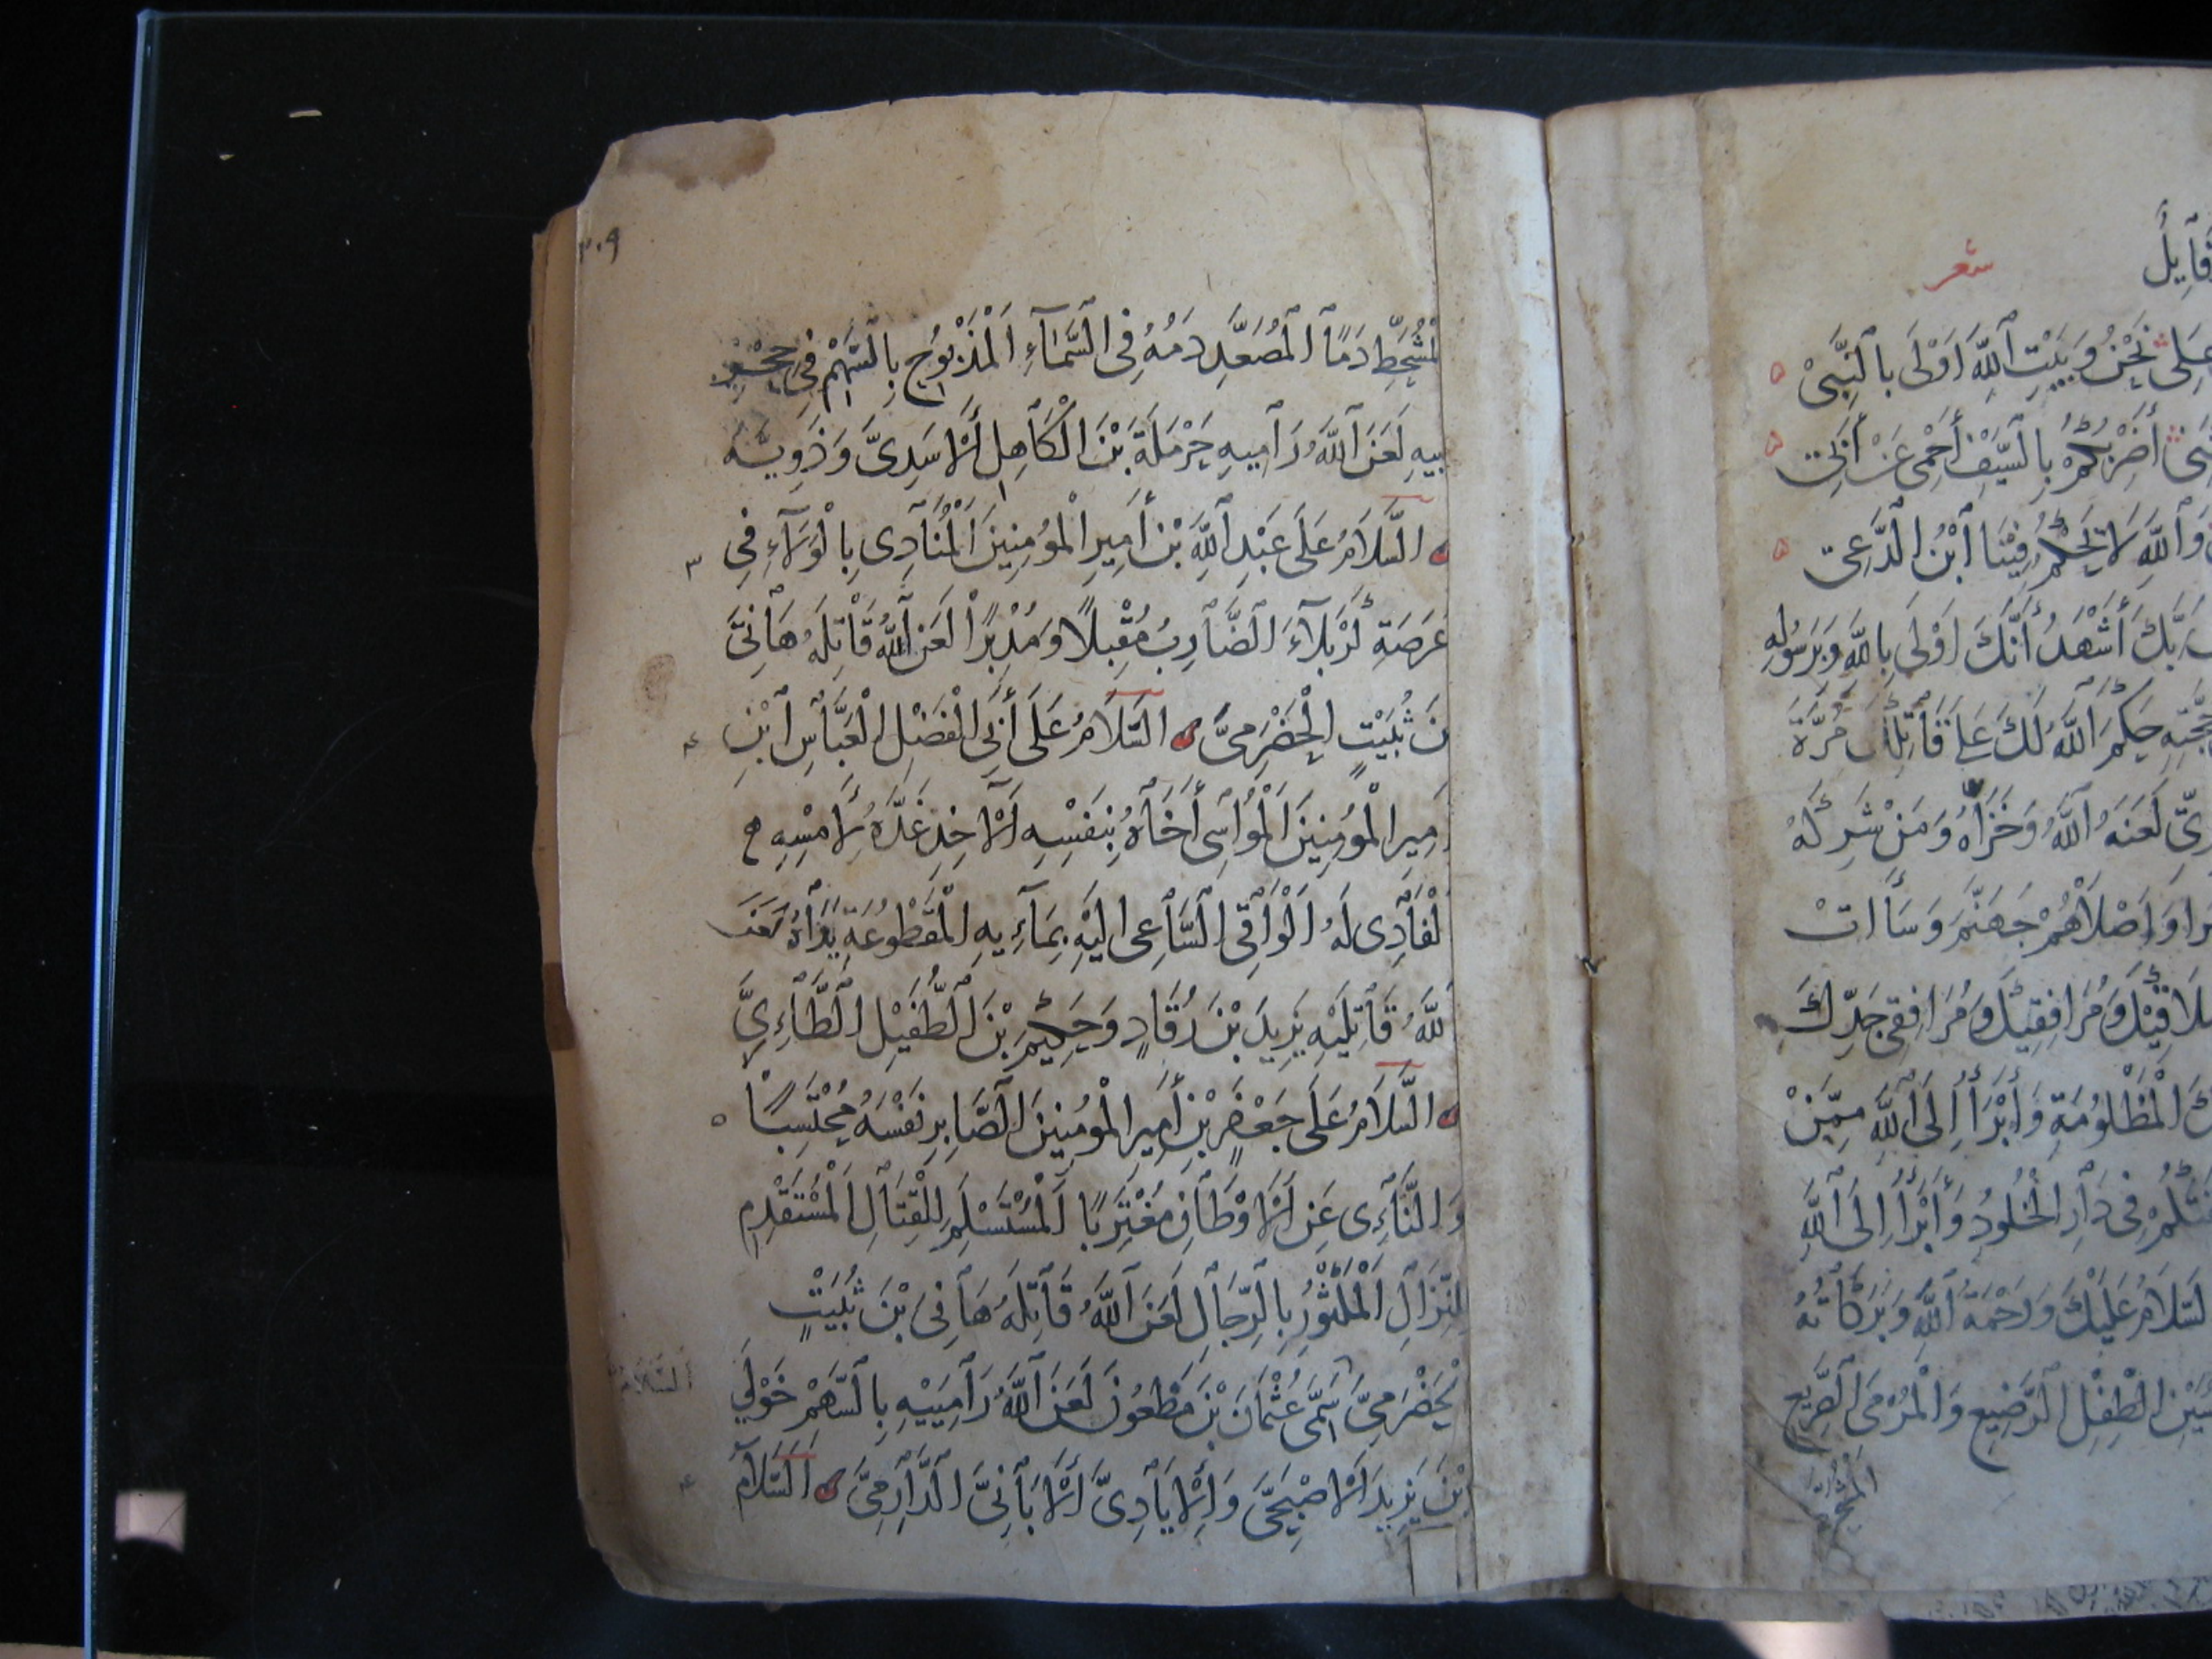 قَآيِلً
شعر
عَلِى نَحْنُ وَبَيْتِ اللّٰهِ اَوْلَى بِالنَّبِىْ
أَضْرِبُكُمْ بِالسَّيْفِ أَحْمِى عَنْ أَبِى
وَاللّٰهِ لَا يَحْكُمُ فِيْنَا ابْنُ الدَّعِى
رَبَّكَ أَشْهَدُ أَنَّكَ اَوْلَى بِاللّٰهِ وَبِرَسُولِهِ
حَكَمَ اللّٰهُ لَكَ عَلَى قَاتِلِكَ مُرَّةَ
لَعَنَهُ اللّٰهُ وَخَزَاهُ وَمَنْ شَرِكَهُ
وَاَصْلَاهُمْ جَهَنَّمَ وَسَأَاتْ
مُلَاقِيْكَ وَمُرَافِقِيْكَ وَمُرَافِقِى جَدِّكَ
الْمَظْلُومَةِ وَأَبْرَأُ اِلَى اللّٰهِ مِمَّنْ
فِى دَارِ الْخُلُودِ وَأَبْرَأُ اِلَى اللّٰهِ
السَّلَامُ عَلَيْكَ وَرَحْمَةُ اللّٰهِ وَبَرَكَاتُهُ
الطِّفْلِ الرَّضِيْعِ وَالْمَرْمِى الصَّرِيْعِ
٣٠٩
الْمُتَشَحِّطِ دَمًا الْمُصَعَّدِ دَمُهُ فِى السَّمَآءِ الْمَذْبُوحِ بِالسَّهْمِ فِى حِجْرِ
بِيهِ لَعَنَ اللّٰهُ رَامِيهِ حَرْمَلَةَ بْنَ الْكَاهِلِ الْأَسَدِىَّ وَذَوِيهِ
السَّلَامُ عَلَى عَبْدِ اللّٰهِ بْنِ أَمِيرِ الْمُؤْمِنِينَ الْمُنَادِى بِالْوَلَآءِ فِى ٣
عَرَصَةِ كَرْبَلَآءَ الضَّارِبِ مُقْبِلًا وَمُدْبِرًا لَعَنَ اللّٰهُ قَاتِلَهُ هَانِىَّ
نَ ثُبَيْتٍ الْحَضْرَمِىَّ السَّلَامُ عَلَى أَبِى الْفَضْلِ الْعَبَّاسِ ابْنِ ٤
مِيرِ الْمُؤْمِنِينَ الْمُوَاسِى أَخَاهُ بِنَفْسِهِ الْآخِذِ غَدَهُ لِأَمْسِهِ
لْفَادِى لَهُ الْوَاقِى السَّاعِى اِلَيْهِ بِمَآئِهِ الْمَقْطُوعَةِ يَدَاهُ لَعَنَ
للّٰهُ قَاتِلَيْهِ يَزِيدَ بْنَ رُقَادٍ وَحَكِيمَ بْنَ الطُّفَيْلِ الطَّاءِىَّ
السَّلَامُ عَلَى جَعْفَرِ بْنِ أَمِيرِ الْمُؤْمِنِينَ الصَّابِرِ نَفْسَهُ مُحْتَسِبًا ٥
وَالنَّآءِى عَنِ الْأَوْطَانِ مُغْتَرِبًا الْمُسْتَسْلِمِ لِلْقِتَالِ الْمُسْتَقْدِمِ
لِلنِّزَالِ الْمَكْثُورِ بِالرِّجَالِ لَعَنَ اللّٰهُ قَاتِلَهُ هَانِىَ بْنَ ثُبَيْتٍ
لْحَضْرَمِىَّ سَمِىِّ عُثْمَانَ بْنِ مَظْعُونٍ لَعَنَ اللّٰهُ رَامِيَيْهِ بِالسَّهْمِ خَوْلِىَّ
السَّلَامُ
ابْنَ يَزِيدَ الْأَصْبَحِىَّ وَالْأَيَادِىَّ الْأَبَانِىَّ الدَّارِمِىَّ السَّلَامُ